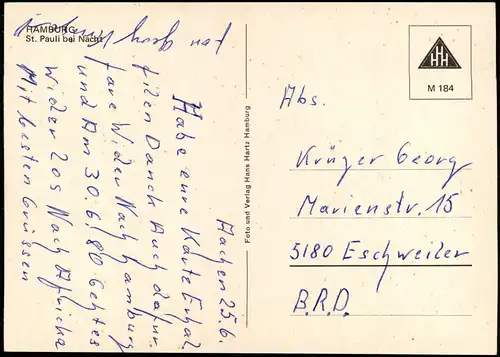 HAMBURG
St. Pauli bei Nacht
Aachen 25.6.
Habe eure Karte Erhal
filen Danck Auch dafür
fare Wider Nach Hamburg
und Am 30.6.80 Gehtes
wider los Nach Africha
Mit besten Grüssen
Georg
Foto und Verlag Hans Hartz Hamburg
HHH
M 184
Abs.
Krüger Georg
Marienstr. 15
5180 Eschweiler
B.R.D.